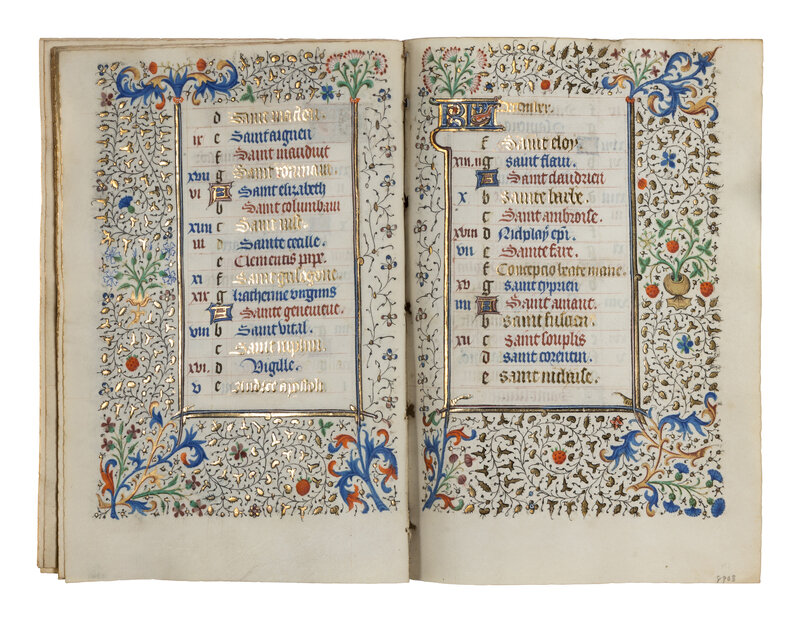 d Saint
ix e Saint aignen
f Saint mauduit
xvii g Saint romain.
vi A Saint elizabeth
b Saint columbain
xiiii c Saint
iii d Sainte cecille.
e Clementis pape.
xi f Saint
xix g katherine virginis
A Sainte genevieue.
viii b Saint vital.
c Saint
xvi. d Vigille.
v e andree apostole
KL Decembre.
f Saint eloy.
xiii. g saint flaui.
A Saint claudrien
x b Sainte barbe.
c Saint ambroise.
xviii d Nicolay epi.
vii e Sainte fare.
f Concepcio beate marie.
xv g saint cyprien
iiii A Saint amant.
b saint fuscien.
xii c saint souplis
d saint corentin.
e saint nichaise.